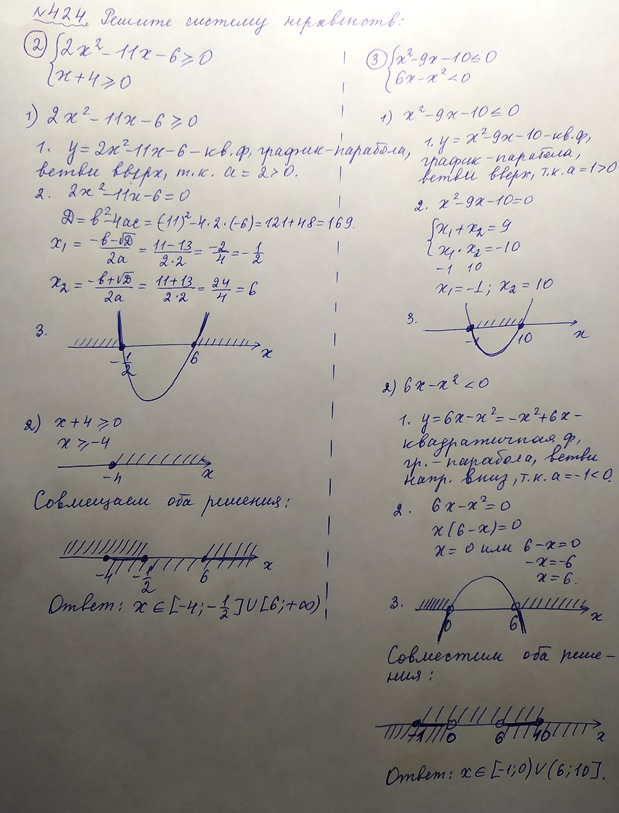 №424. Решите систему неравенств:
② {2x²-11x-6⩾0
x+4⩾0
1) 2x²-11x-6⩾0
1. y=2x²-11x-6-кв.ф, график-парабола,
ветви вверх, т.к. a=2>0.
2. 2x²-11x-6=0
D=b²-4ac=(-11)²-4·2·(-6)=121+48=169.
x₁=(-b-√D)/2a=(11-13)/2·2=-2/4=-1/2
x₂=(-b+√D)/2a=(11+13)/2·2=24/4=6
3.
-1/2 6 x
2) x+4⩾0
x⩾-4
-4 x
Совмещаем оба решения:
-4 -1/2 6 x
Ответ: x∈[-4;-1/2]∪[6;+∞)
③ {x²-9x-10≤0
6x-x²<0
1) x²-9x-10≤0
1. y=x²-9x-10-кв.ф,
график-парабола,
ветви вверх, т.к. a=1>0
2. x²-9x-10=0
{x₁+x₂=9
x₁·x₂=-10
-1 10
x₁=-1; x₂=10
3.
-1 10 x
2) 6x-x²<0
1. y=6x-x²=-x²+6x-
квадратичная ф,
гр.-парабола, ветви
напр. вниз, т.к. a=-1<0.
2. 6x-x²=0
x(6-x)=0
x=0 или 6-x=0
-x=-6
x=6.
3.
0 6 x
Совместим оба реше-
ния:
-1 0 6 10 x
Ответ: x∈[-1;0)∪(6;10].